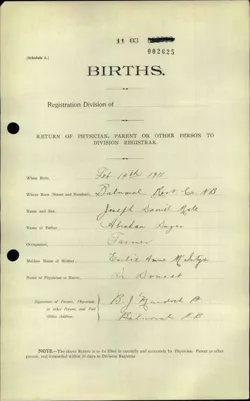 11 03
002625
(Schedule A.)
BIRTHS.
Registration Division of
RETURN OF PHYSICIAN, PARENT OR OTHER PERSON TO
DIVISION REGISTRAR.
When Born, Feb 10th 1911
Where Born (Street and Number), Balmoral Rest. Co. NB
Name and Sex, Joseph Daniel Male
Name of Father,
Occupation, Farmer
Maiden Name of Mother, McIntyre
Name of Physician or Nurse,
Signature of Parent, Physician
or other Person, and Post
Office Address, B. J.
Balmoral N.B
NOTE.—The above Return is to be filled in carefully and accurately by Physician, Parent or other
person, and forwarded within 30 days to Division Registrar.